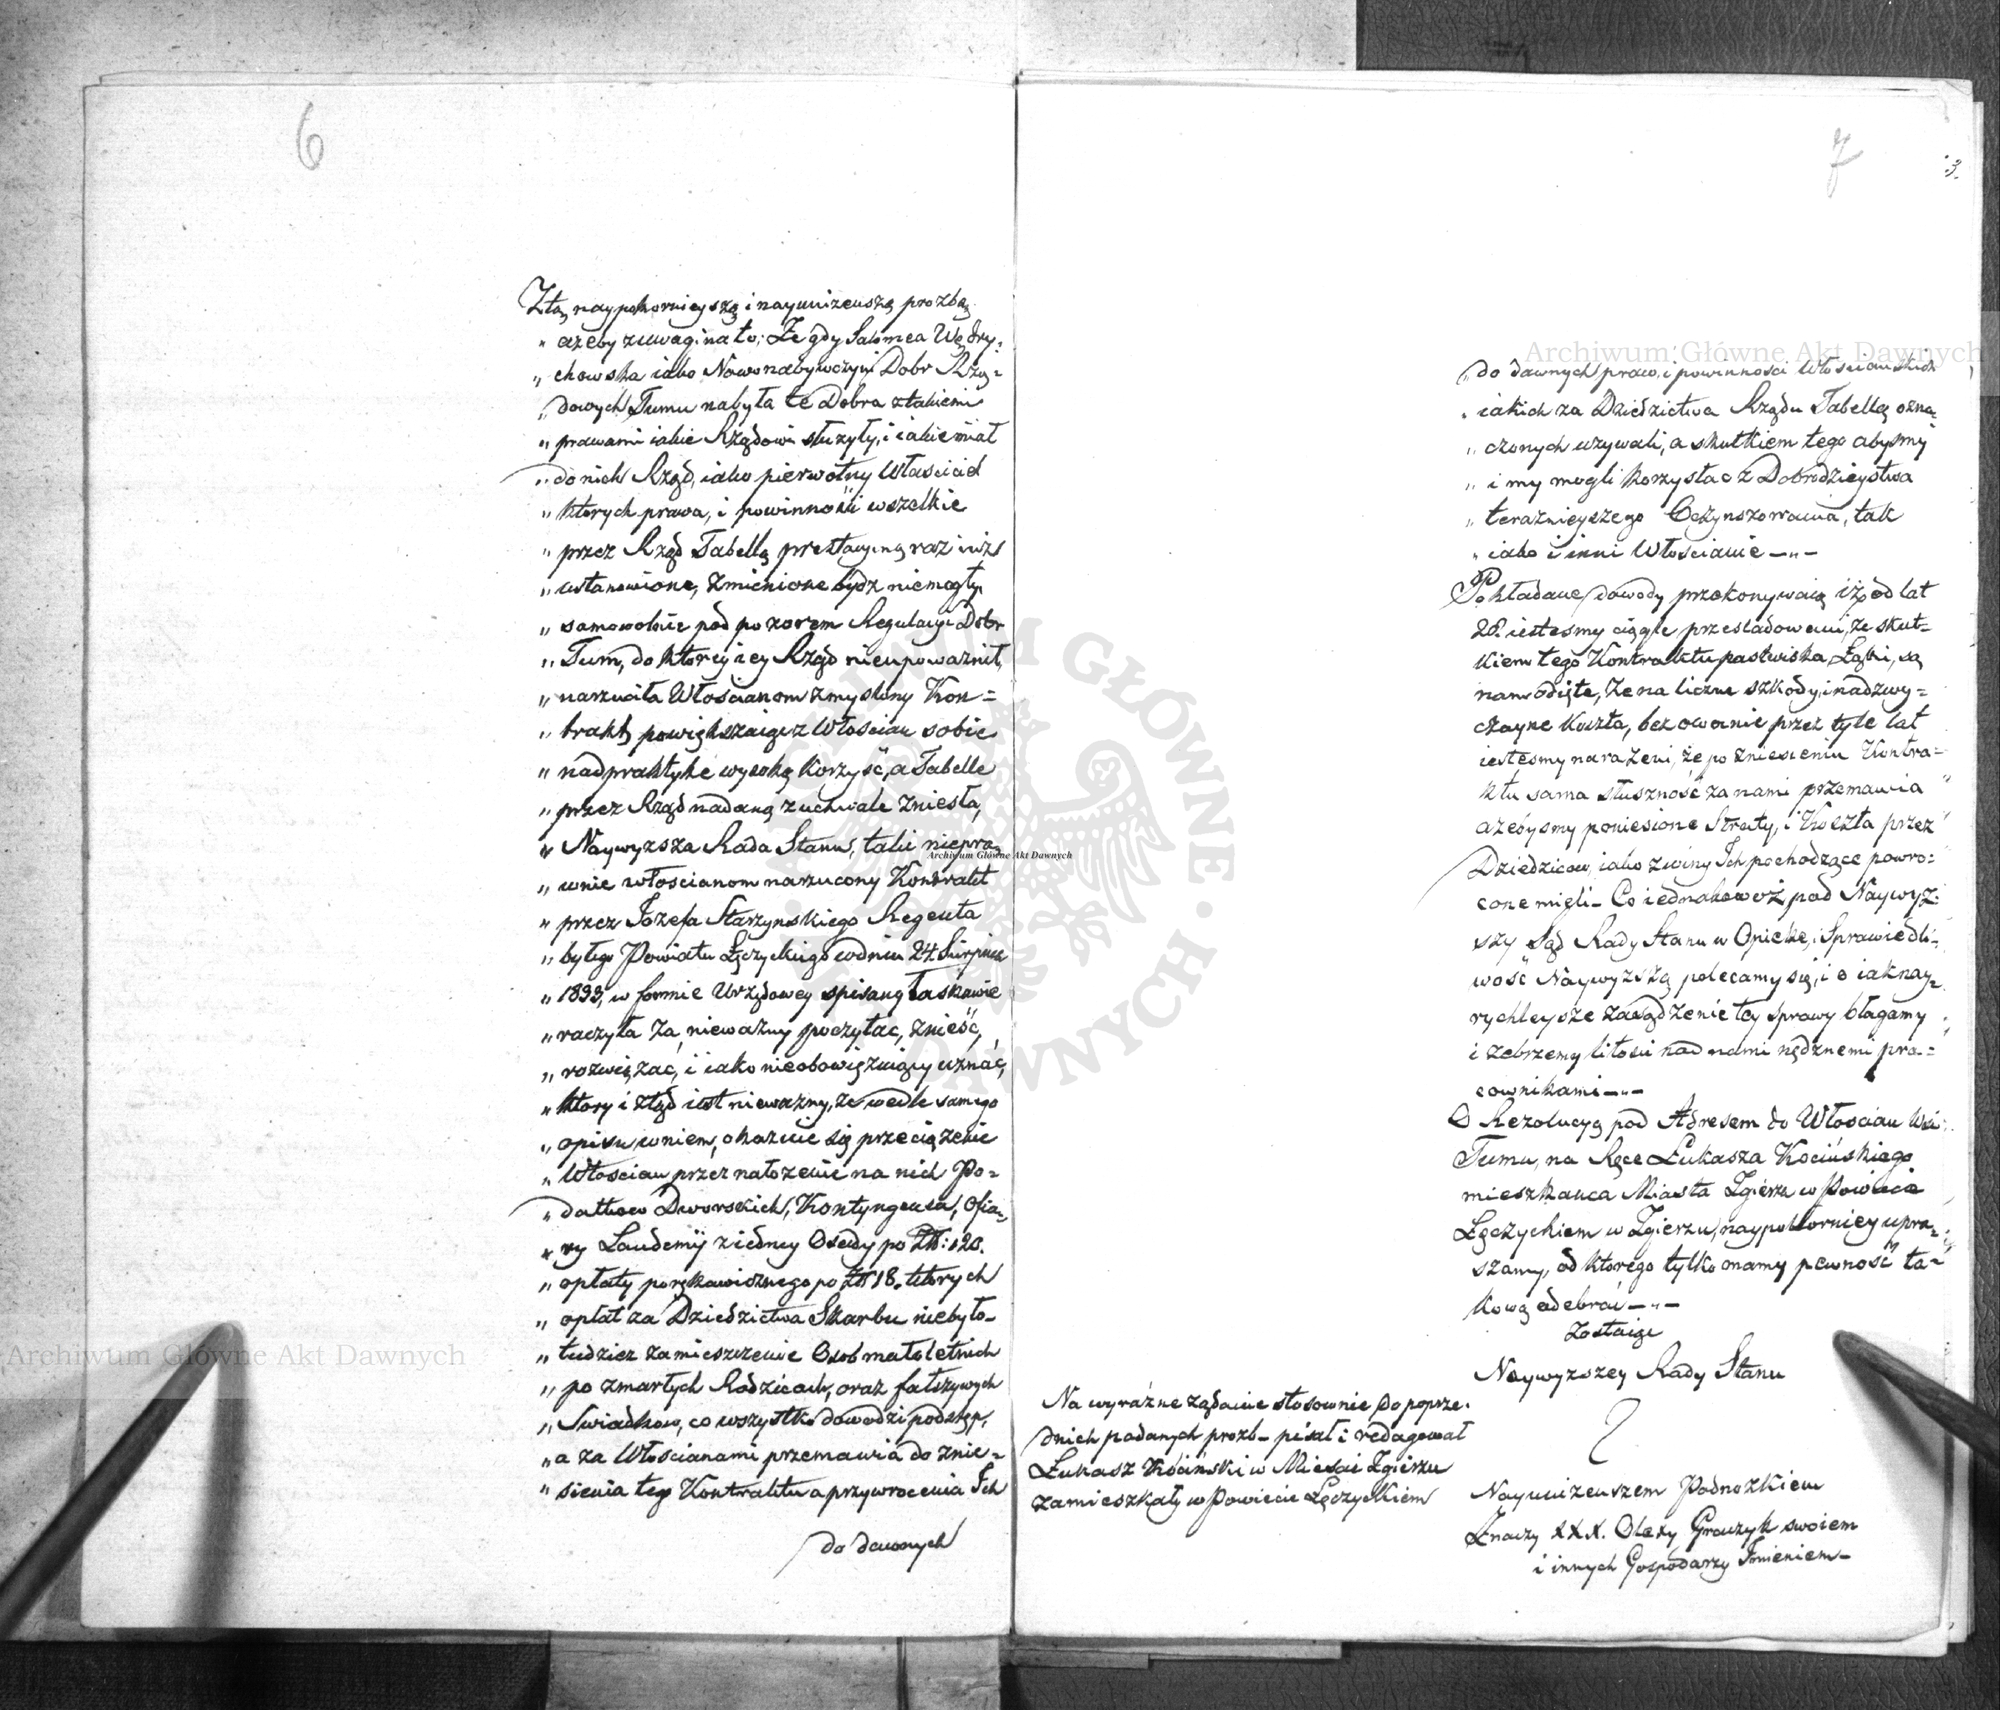 6
Z tą naypokornieyszą i nayuniżeńszą prozbą
„ ażeby z uwagi na to; Że gdy Salomea Wędry-
„ chowska iako Nowonabywczyni Dobr Rzą-
„ dowych Tumu nabyła te Dobra z takiemi
„ prawami iakie Rządowi służyły, i iakie miał
„ do nich Rząd, iako pierwotny Właściciel
„ których prawa, i powinności wszelkie
„ przez Rząd Tabellą prestacyiną raz iuż
„ ustanowione, zmienione bydz niemogły
„ samowolnie pod pozorem Regulacyi Dobr
„ Tum, do którey iey Rząd nieupoważnił,
„ narzuciła Włościanom zmyslony Kon=
„ trakt, powiększaiąc z Włościan sobie
„ nad praktykę wysoką korzyść, a Tabelle
„ przez Rząd nadaną zuchwale zniesła,
„ Naywyzsza Rada Stanu, taki niepra
„ wnie włościanom narzucony Kontrakt
„ przez Jozefa Starzynskiego Regenta
„ byłego Powiatu Łęczyckiego w dniu 24 Sierpnia
„ 1833, w formie Urzędowey spisany łaskawie
„ raczyła za nieważny poczytac, znieść,
„ rozwiązać, i iako nieobowiązuiący uznać,
„ który i ztąd iest nieważny, że wedle samego
„ opisu w niem, okazuie się przeciążenie
„ Włościan przez nałożenie na nich Po-
„ datkow Dworskich, Kontyngensu, Ofia-
„ ry Laudemij z iedney Osady po Złł: 120.
„ opłaty porękawicznego po Złł 18. których
„ opłat za Dziedzictwa Skarbu niebyło-
„ tudziez zamieszczenie Osob małoletnich
„ po zmarłych Rodzicach, oraz fałszywych
„ Swiadkow, co wszystko dowodzi podstęp,
„ a za Włościanami przemawia do znie-
„ sienia tego Kontraktu a przywrocenia Ich
do dawnych
7
3.
„ do dawnych praw, i powinności Włosciańskich
„ iakich za Dziedzictwa Rządu Tabellą ozna-
„ czonych używali, a skutkiem tego abysmy
„ i my mogli korzystac z Dobrodzieystwa
„ teraźnieyszego Oczynszowania, tak
„ iako i inni Włościanie —„—
Pokładane dowody przekonywaią iż od lat
28. iestesmy ciągle przesladowani, że skut-
kiem tego Kontraktu pastwiska, Łąki, są
nam odięte, że na liczne szkody, i nadzwy-
czayne koszta, bezowocnie przez tyle lat
iestesmy narażeni, że po zniesieniu Kontra-
ktu sama słuszność za nami przemawia
ażebysmy poniesione Straty, i Koszta przez
Dziedzicow, iako z winy Ich pochodzące powro-
cone mieli — Co iednakowoż pod Naywyż-
szy Sąd Rady Stanu w Opiekę, i Sprawiedli-
wość Naywyzszą polecamy się, i o iaknay-
rychleysze zasądzenie tey sprawy błagamy
i żebrzemy litosci nad nami nędznemi pra-
cownikami —„—
O Rezolucyą pod Adresem do Włościan Wsi
Tumu, na Ręce Łukasza Kocińskiego
mieszkanca Miasta Zgierza w Powiecie
Łęczyckiem w Zgierzu, naypokorniey upra-
szamy, od ktorego tylko mamy pewność ta-
kową odebrać —„—
Zostaiąc
Naywyzszey Rady Stanu
Nayuniżeńszem Podnożkiem
Znaczy XXX. Olexy Graczyk swoiem
i innych Gospodarzy Imieniem —
Na wyrażne żądanie stosownie do poprze-
dnich podanych prozb — pisał i redagował
Łukasz Kociński w Miescie Zgierzu
zamieszkały w Powiecie Łęczyckiem
Archiwum Główne Akt Dawnych
Archiwum Główne Akt Dawnych
Archiwum Główne Akt Dawnych
ARCHIWUM GŁÓWNE AKT DAWNYCH